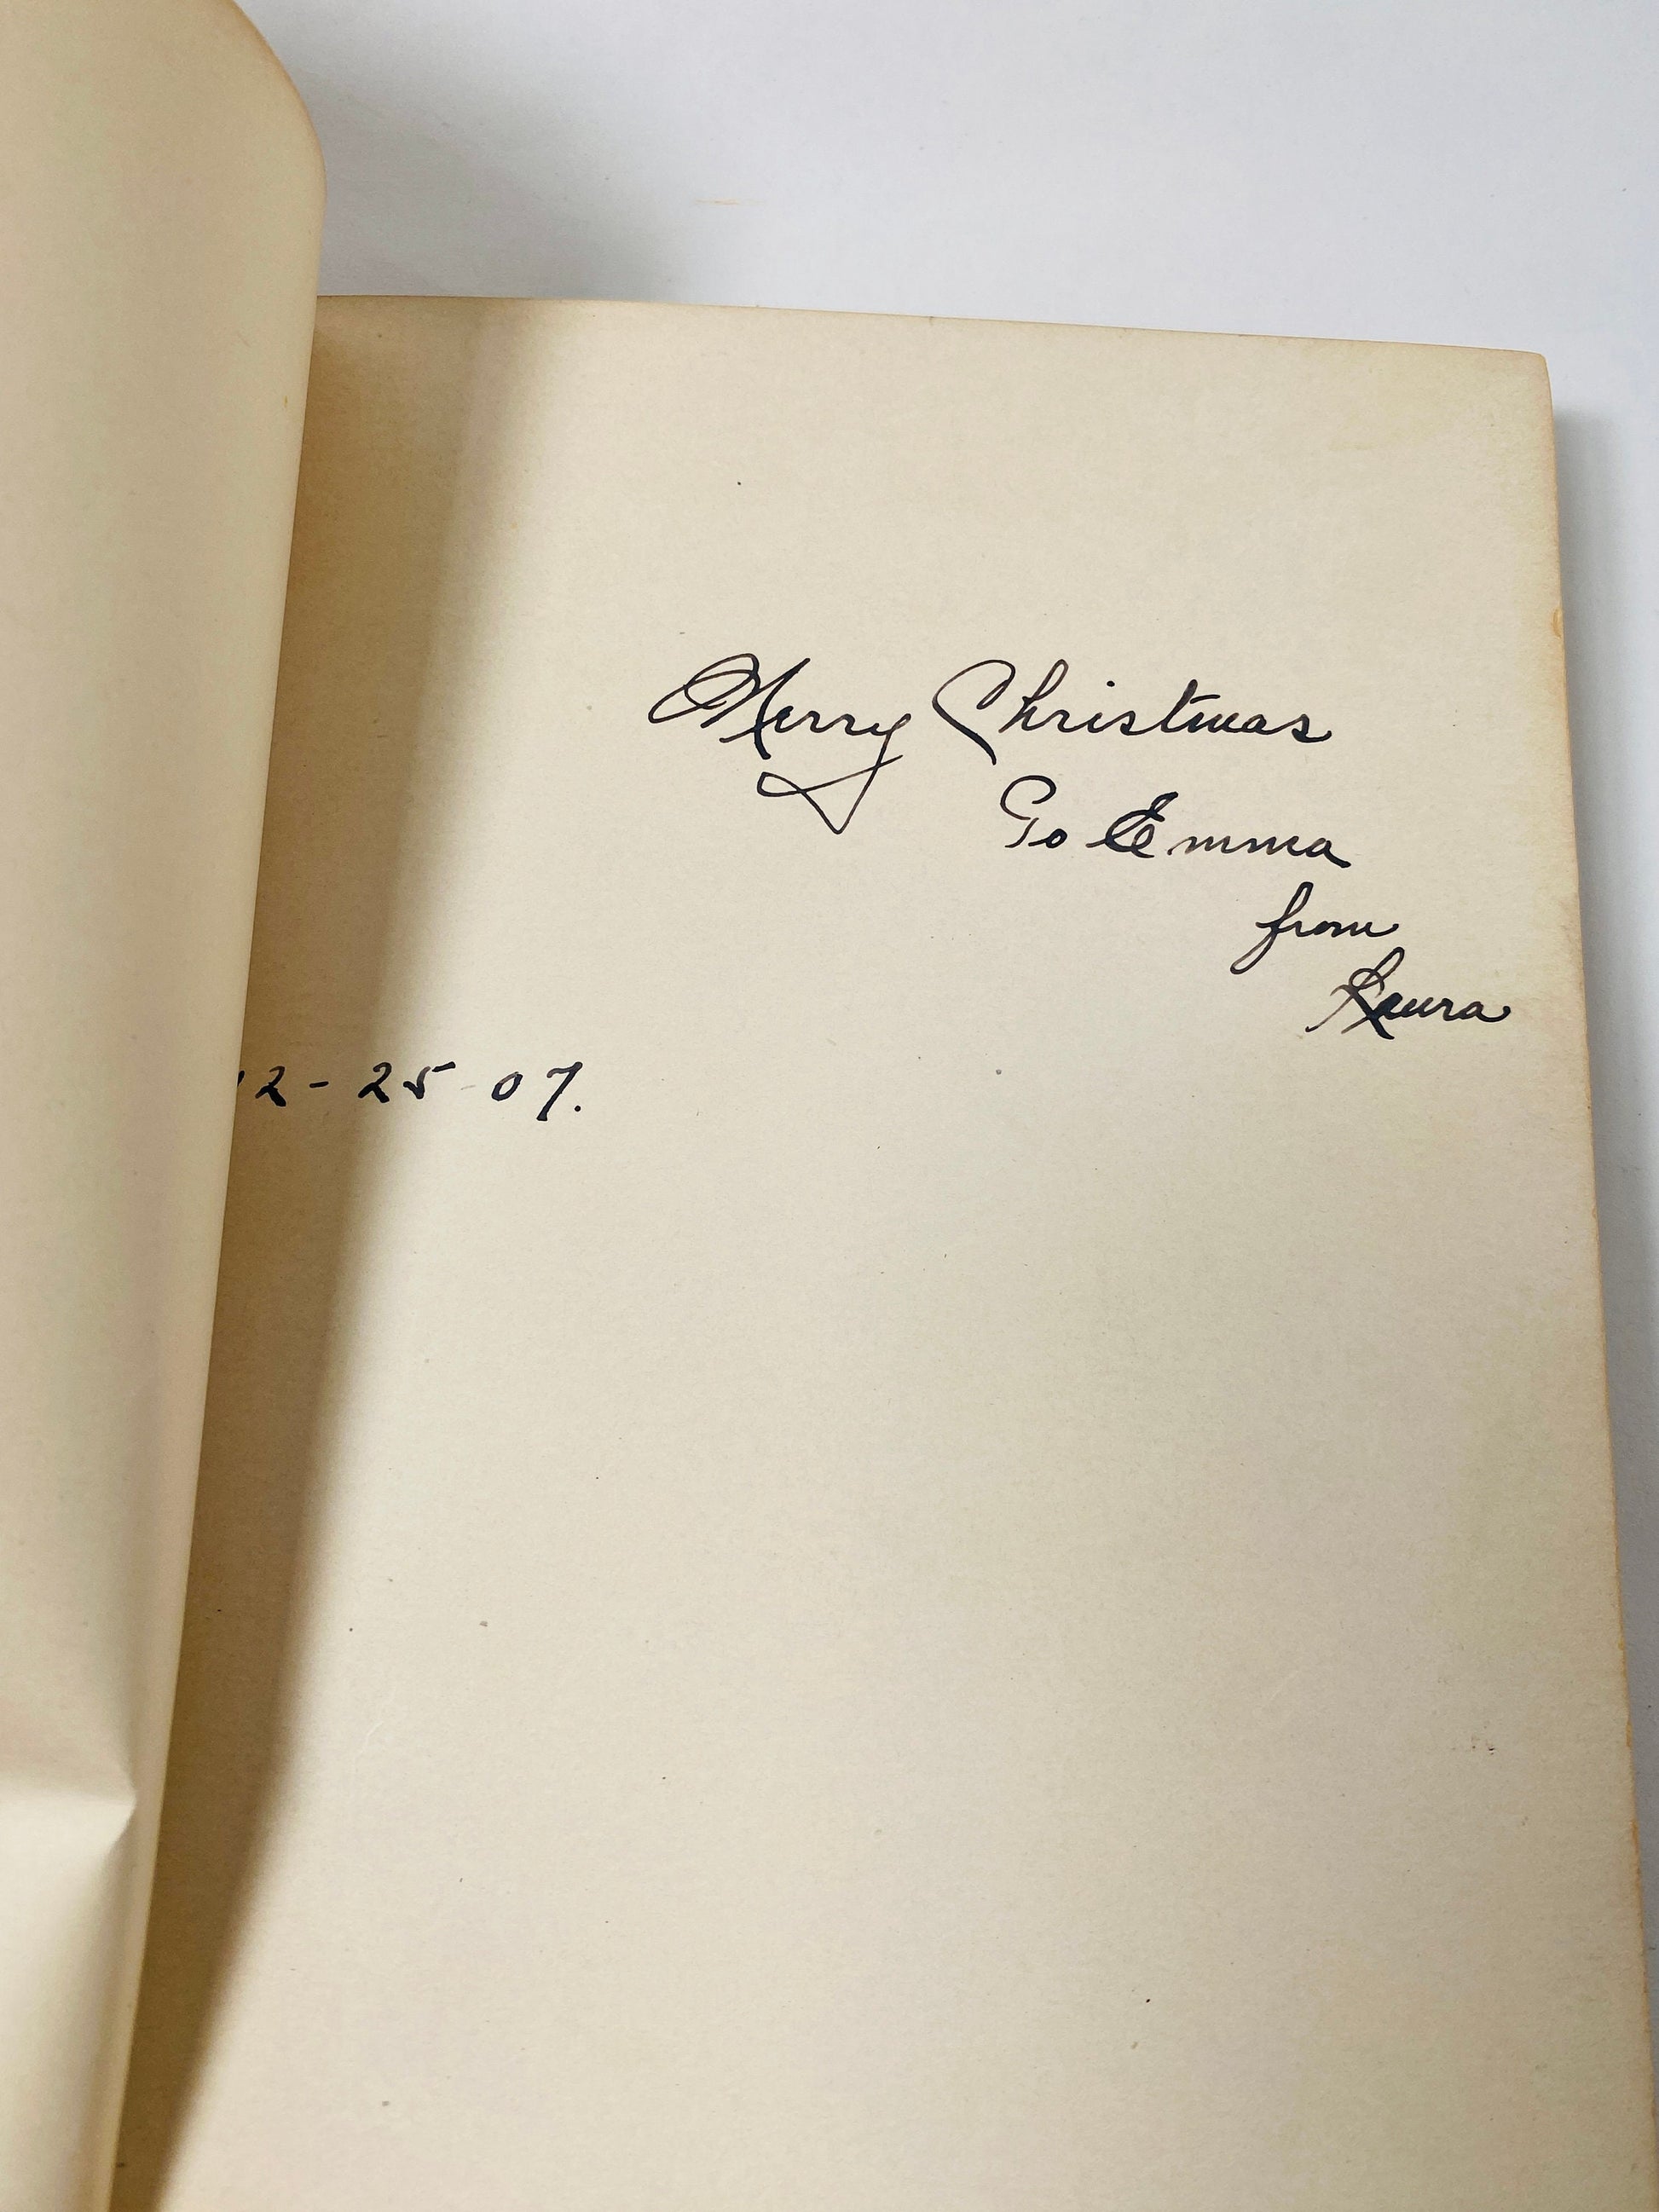 Merry Christmas
To Emma
from
Laura
12-25-07.